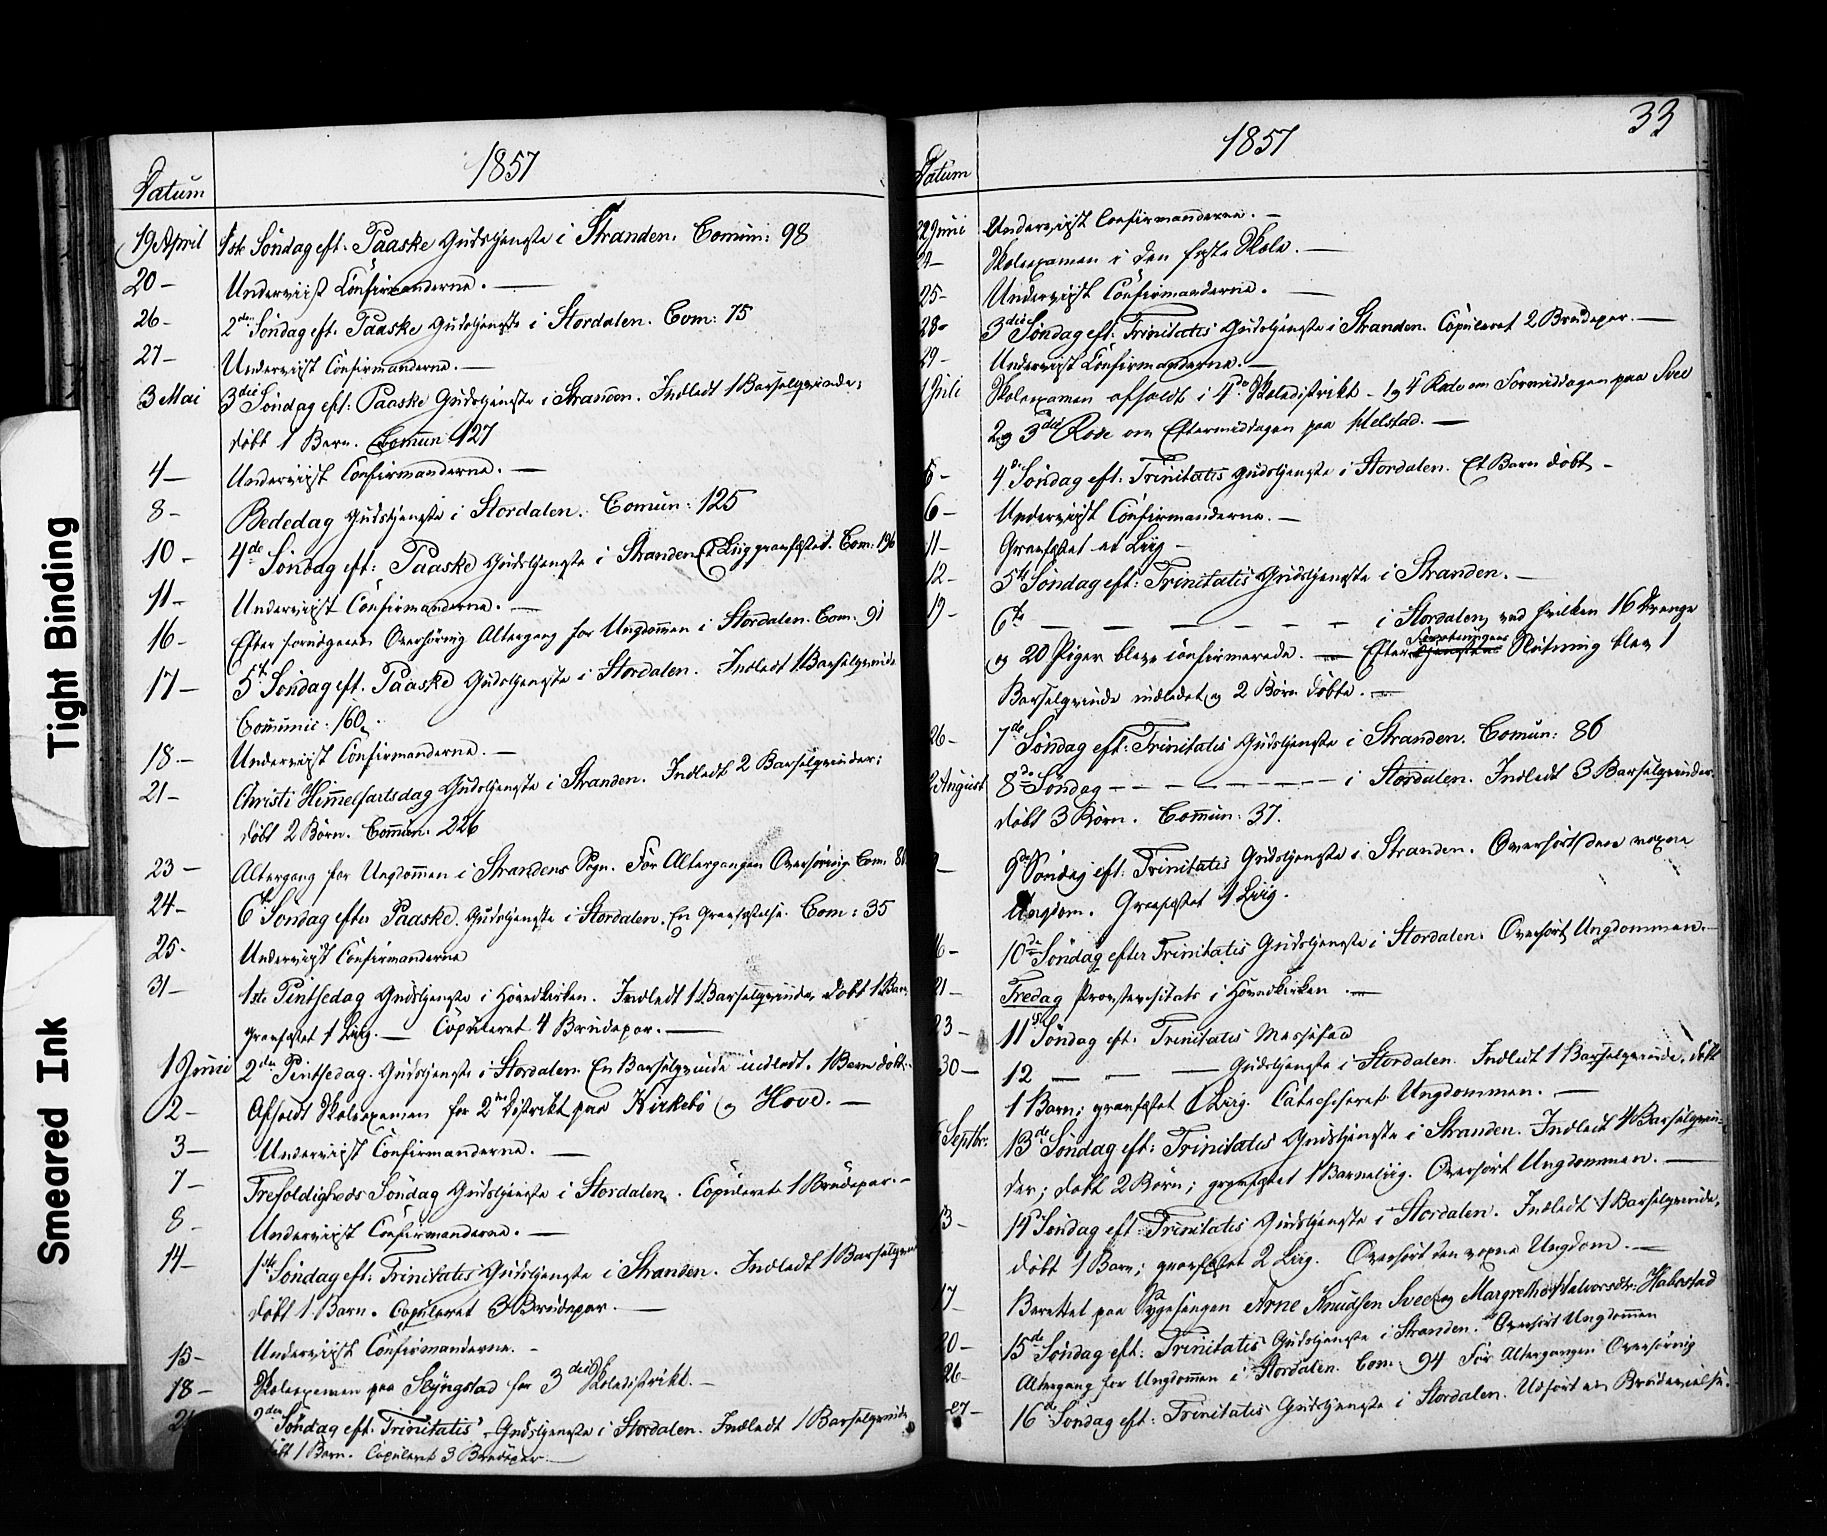 1857
Datum
19 April 1ste Söndag eft. Paaske Gudstjeneste i Stranden. Comun: 98
20 – Underviist Confirmanderne. —
26 – 2den Söndag eft. Paaske Gudstjeneste i Stordalen. Com: 75
27 – Underviist Confirmanderne. —
3 Mai 3die Söndag eft: Paaske Gudstjeneste i Stranden. Indledt 1 Barselqvinde;
döbt 1 Barn. Comun: 127
4 – Underviist Confirmanderne. —
8 – Bededag Gudstjeneste i Stordalen. Comun: 125
10 – 4de Söndag eft: Paaske Gudstjeneste i Stranden Et Liig gravfæstet. Com: 196
11 – Underviist Confirmanderne. —
16 – Efter foregaaende Overhöring Altergang for Ungdommen i Stordalen. Com: 91
17 – 5te Söndag eft. Paaske Gudstjeneste i Stordalen. Indledt 1 Barselqvinde
Comunic. 160.
18 – Underviist Confirmanderne. —
21 – Christi Himmelfartsdag Gudstjeneste i Stranden. Indledt 2 Barselqvinder;
döbt 2 Börn. Comun. 226
23 – Altergang for Ungdommen i Strandens Sogn. För Altergangen Overhöring. Com:
24 – 6te Söndag efter Paaske. Gudstjeneste i Stordalen. En Gravfæstelse. Com: 35
25 – Underviist Confirmanderne
31 – 1ste Pintsedag Gudstjeneste i Hovedkirken. Indledt 1 Barselqvinde, döbt 1 Barn,
Gravfæstet 1 Liig. — Copuleret 4 Brudepar. —
1 Juni 2den Pintsedag. Gudstjeneste i Stordalen. En Barselqvinde indledt. 1 Barn döbt.
2 – Afholdt Skoleexamen for 2det Distrikt paa Kirkebö og Hove. —
3 – Underviist Confirmanderne. —
7 – Trefoldigheds Söndag Gudstjeneste i Stordalen. Copuleret 1 Brudepar. –
8 – Underviist Confirmanderne. —
14 – 1ste Söndag eft: Trinitatis Gudstjeneste i Stranden. Indledt 1 Barselqvin
döbt 1 Barn. Copuleret 3 Brudepar. —
15 – Underviist Confirmanderne. –
18 – Skoleexamen paa Slyngstad for 3die Skoledistrikt. –
2den Söndag eft: Trinitatis Gudstjeneste i Stordalen. Indledt 1 Barselqvinde
döbt 1 Barn. Copuleret 3 Brudepar. —
33
1857
Datum
22 Juni Underviist Confirmanderne. –
24 – Skoleexamen i den faste Skole. —
25 – Underviist Confirmanderne. —
28 – 3die Söndag eft. Trinitatis Gudstjeneste i Stranden. Copuleret 2 Brudepar. —
29 – Underviist Confirmanderne. —
1 Juli Skoleexamen afholdt i 4de Skoledistrikt – 1 og 4 Rode om Formiddagen paa Svee
2 og 3die Rode om Eftermiddagen paa Melstad. —
5 – 4de Söndag eft: Trinitatis Gudstjeneste i Stordalen. Et Barn döbt –
6 – Underviist Confirmanderne. —
11 – Gravfæstet et Liig –
12 – 5te Söndag eft: Trinitatis Gudstjeneste i Stranden. –
19 – 6te — — — — — — i Stordalen, ved hvilken 16 Drenge
og 20 Piger bleve confirmerede. — Efter Forretningens Slutning blev 1
Barselqvinde indledet og 2 Börn döbte. —
26 – 7de Söndag eft: Trinitatis Gudstjeneste i Stranden. Comun: 86
2 August 8de Söndag – – – – – – – i Stordalen. Indledt 3 Barselqvinder.
döbt 3 Börn. Comun: 37.
9 – 9de Söndag eft. Trinitatis Gudstjeneste i Stranden. Overhört den voxne
Ungdom. Gravfæstet 1 Liig.
16 – 10de Söndag efter Trinitatis Gudstjeneste i Stordalen. Overhört Ungdommen. –
21 – Fredag Provstevisitats i Hovedkirken —
23 – 11te Söndag eft. Trinitatis Messefald
30 – 12 — — — Gudstjeneste i Stordalen. Indledt 1 Barselqvinde, döbt
1 Barn; gravfæstet 1 Liig. Catechiseret Ungdommen. —
6 Septbr. 13de Söndag eft: Trinitatis Gudstjeneste i Stranden. Indledt 4 Barselqvin-
der; döbt 2 Börn; gravfæstet 1 Barneliig. Overhört Ungdommen. —
13 – 14de Söndag eft Trinitatis Gudstjeneste i Stordalen. Indledt 1 Barselqvinde,
döbt 1 Barn; gravfæstet 2 Liig. Overhört den voxne Ungdom. —
17 – Berettet paa Sygesengen Arne Knudsen Svee og Margrethe Halvorsdtr. Habostad
20 – 15de Söndag eft: Trinitatis Gudstjeneste i Stranden. Overhört Ungdommen
26 – Altergang for Ungdommen i Stordalen. Com: 94 För Altergangen Overhöring
27 – 16de Söndag eft: Trinitatis Gudstjeneste i Stordalen. Udfört en Brudevielse.
Tight Binding
Smeared Ink